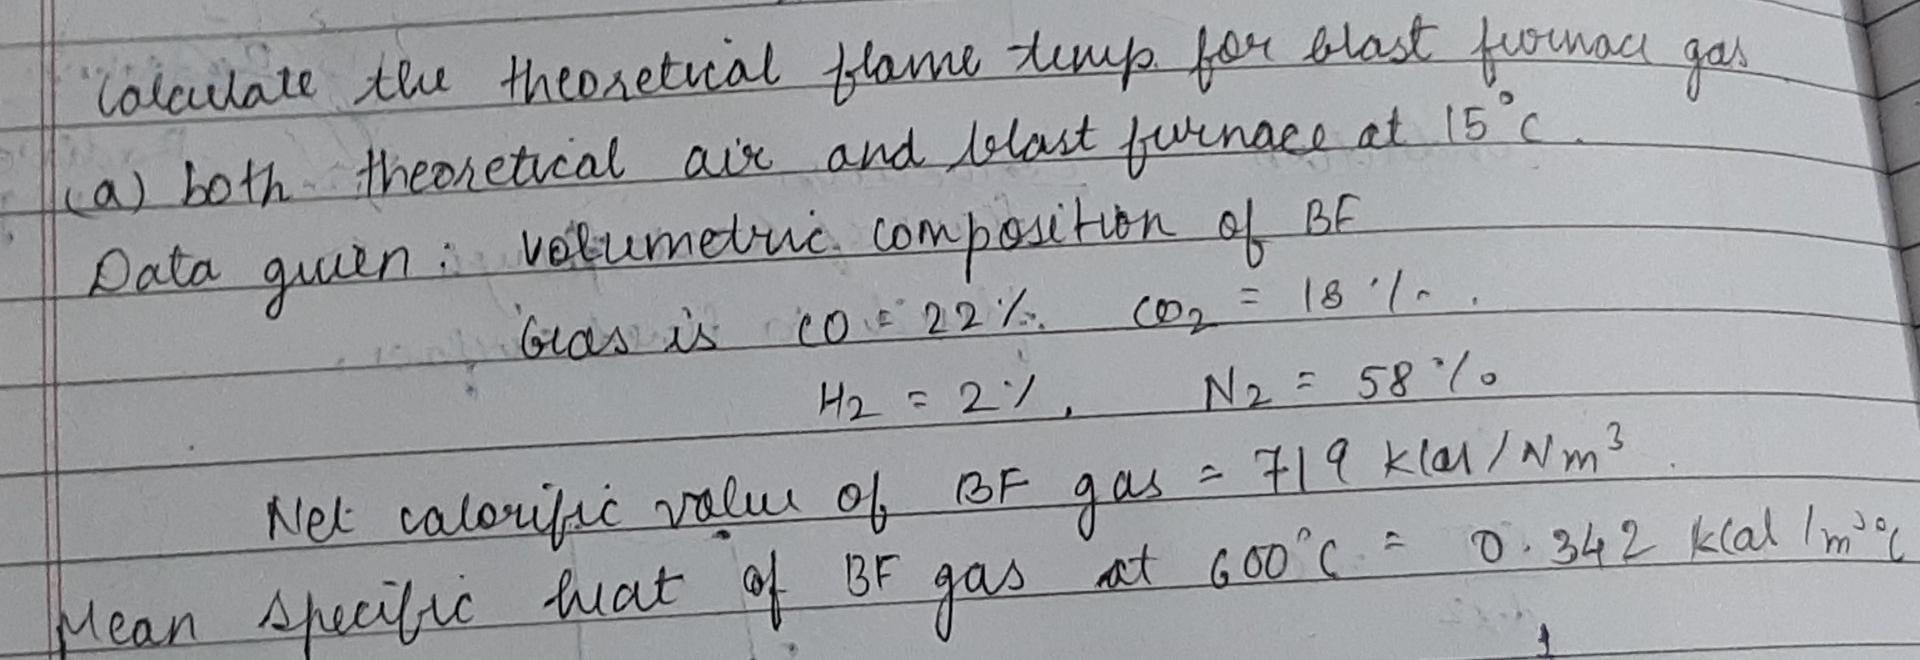 Calculate the theoretical flame temp. for blast furnace gas
(a) both theoretical air and blast furnace at 15°C.
Data given: volumetric composition of BF
Gas is CO = 22%. CO2 = 18%.
H2 = 2%, N2 = 58%
Net calorific value of BF gas = 719 kcal/Nm³.
Mean specific heat of BF gas at 600°C = 0.342 kcal/m³°C